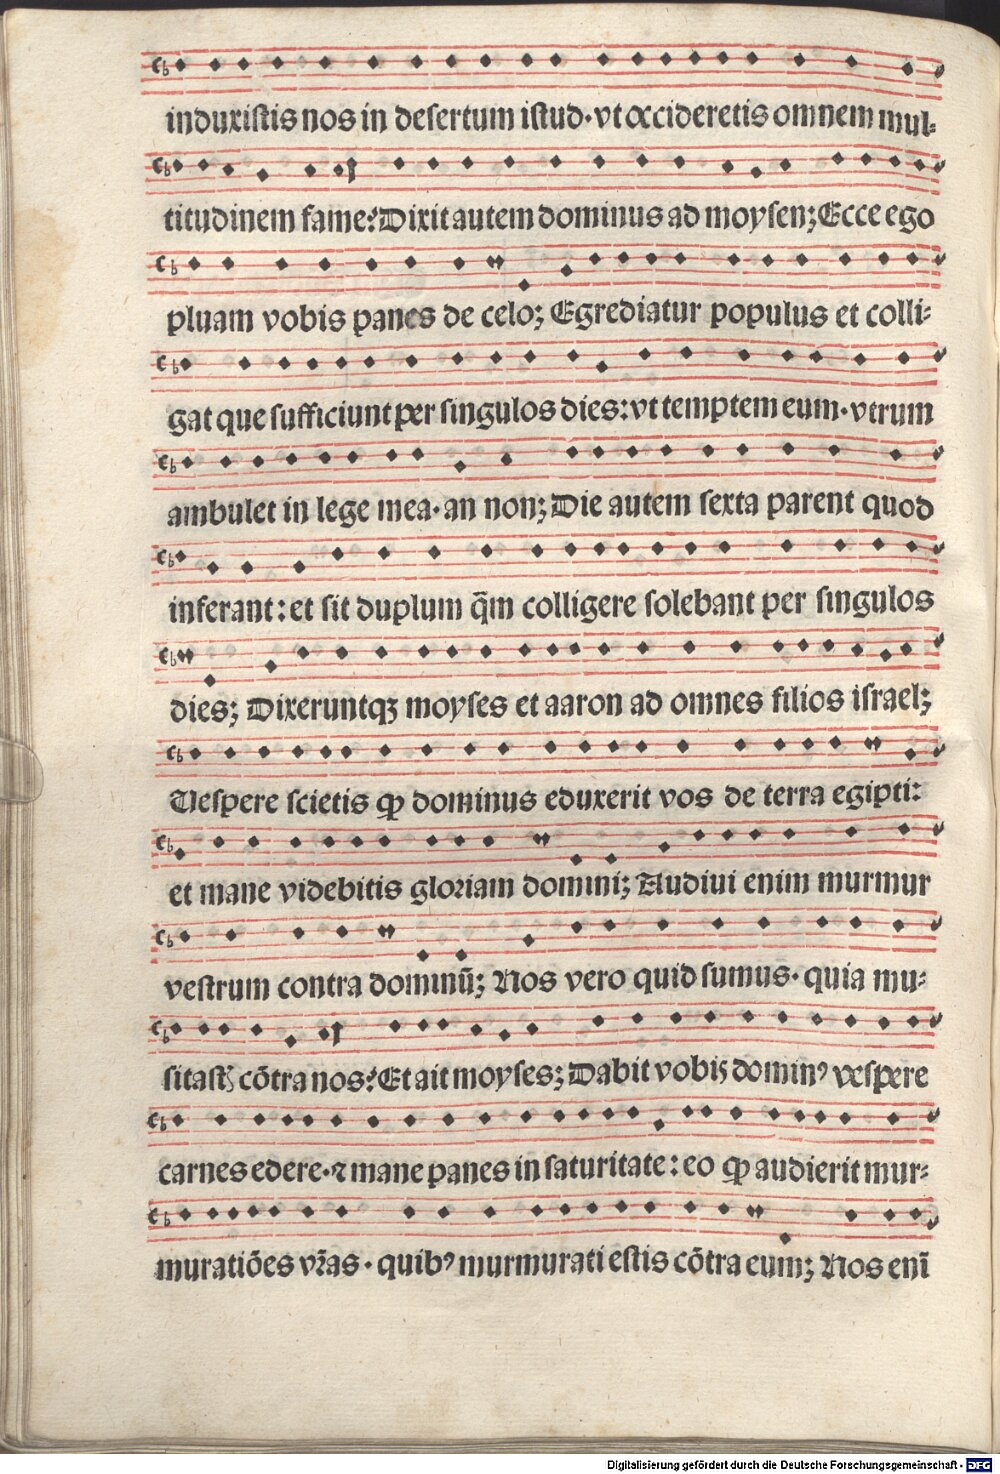 induxistis nos in desertum istud · vt occideretis omnem mul⸗
titudinem fame? Dixit autem dominus ad moysen; Ecce ego
pluam vobis panes de celo; Egrediatur populus et colli⸗
gat que sufficiunt per singulos dies: vt temptem eum · vtrum
ambulet in lege mea · an non; Die autem sexta parent quod
inferant: et sit duplum q̄m colligere solebant per singulos
dies; Dixeruntqꝫ moyses et aaron ad omnes filios israel;
Vespere scietis ꝙ dominus eduxerit vos de terra egipti:
et mane videbitis gloriam domini; Audiui enim murmur
vestrum contra dominū; Nos vero quid sumus · quia mu⸗
sitastꝭ cōtra nos? Et ait moyses; Dabit vobis dominꝰ vespere
carnes edere · ⁊ mane panes in saturitate: eo ꝙ audierit mur⸗
muratiōes vr̄as · quibꝰ murmurati estis cōtra eum; Nos enī
Digitalisierung gefördert durch die Deutsche Forschungsgemeinschaft - DFG